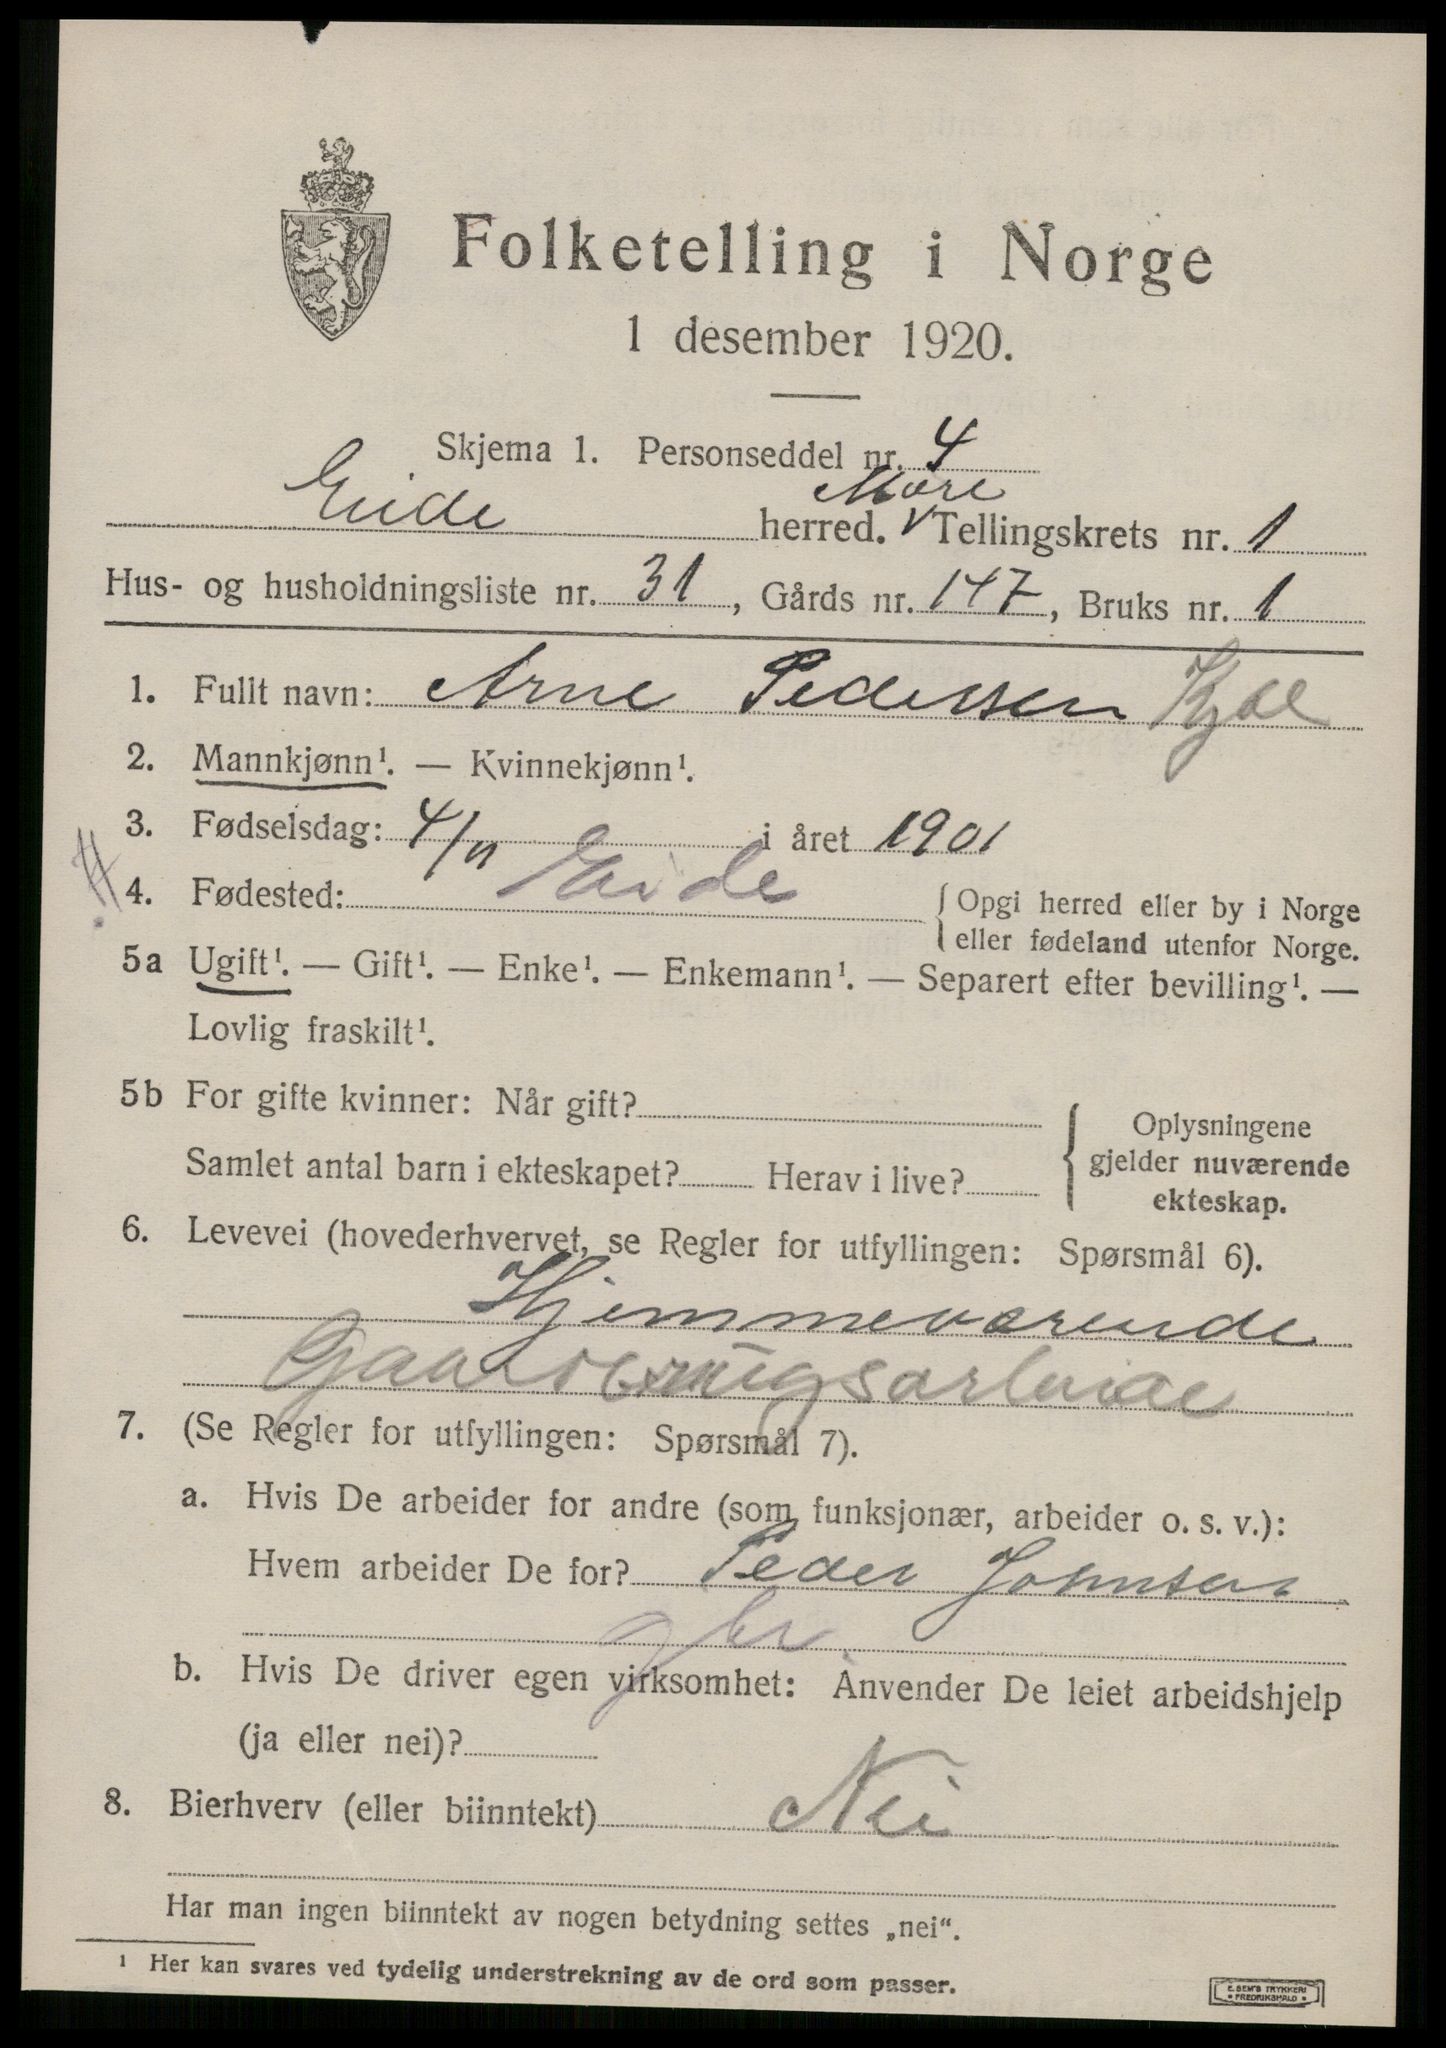 Folketelling i Norge
1 desember 1920.
Skjema 1. Personseddel nr. 4
Møre
Eide herred. V Tellingskrets nr. 1
Hus- og husholdningsliste nr. 31, Gårds nr. 147, Bruks nr. 1
1. Fullt navn: Arne Pedersen
2. Mannkjønn¹. — Kvinnekjønn¹.
3. Fødselsdag: 4/11 i året 1901
4. Fødested: Eide { Opgi herred eller by i Norge
eller fødeland utenfor Norge.
5a Ugift¹. — Gift¹. — Enke¹. — Enkemann¹. — Separert efter bevilling¹. —
Lovlig fraskilt¹.
5b For gifte kvinner: Når gift?
Samlet antal barn i ekteskapet? Herav i live?
{ Oplysningene
gjelder nuværende
ekteskap.
6. Levevei (hovederhvervet, se Regler for utfyllingen: Spørsmål 6).
Hjemmeværende
7. (Se Regler for utfyllingen: Spørsmål 7).
a. Hvis De arbeider for andre (som funksjonær, arbeider o. s. v.):
Hvem arbeider De for? Peder Johnsen
gbr.
b. Hvis De driver egen virksomhet: Anvender De leiet arbeidshjelp
(ja eller nei)?
8. Bierhverv (eller biinntekt) Nei
Har man ingen biinntekt av nogen betydning settes „nei“.
¹ Her kan svares ved tydelig understrekning av de ord som passer.
E. SEM'S TRYKKERI
FREDRIKSHALD